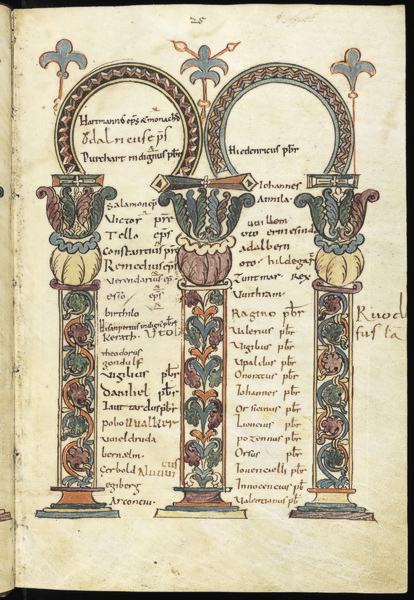 25
Hartmann' ep̄s & monach'
Odalricus ep̄s
Purchart indignus pbr̄
Hiedenricus pbr̄
Salamon ep̄s
Victor pr̄e
Tello ep̄s
Constantius pr̄s
Remedius ep̄s
Verendarius ep̄s
esso ep̄s
birthilo
Kerath
Vtolt
theodorus
gondulf
Vigilius pbr̄
Danihel pbr̄
pobo Vualker
vuieldruda
bernælm
Gerbold
egiberg
Arconcius
Iohannes
Amila
vuillem
oto ermesind
adalbern
oto hildegar
Cuntmar Rex
Vuithram
Ragino pbr̄
Valerius pbr̄
Vigilius pbr̄
Vpaldus pbr̄
Onoratus pbr̄
Iohannes pbr̄
Orsicinus pbr̄
Lioncius pbr̄
pozennus pbr̄
Orsus pbr̄
Iovencellus pbr̄
Innocencius pb̄
Valentianus pb̄
Ruodl
fus ta